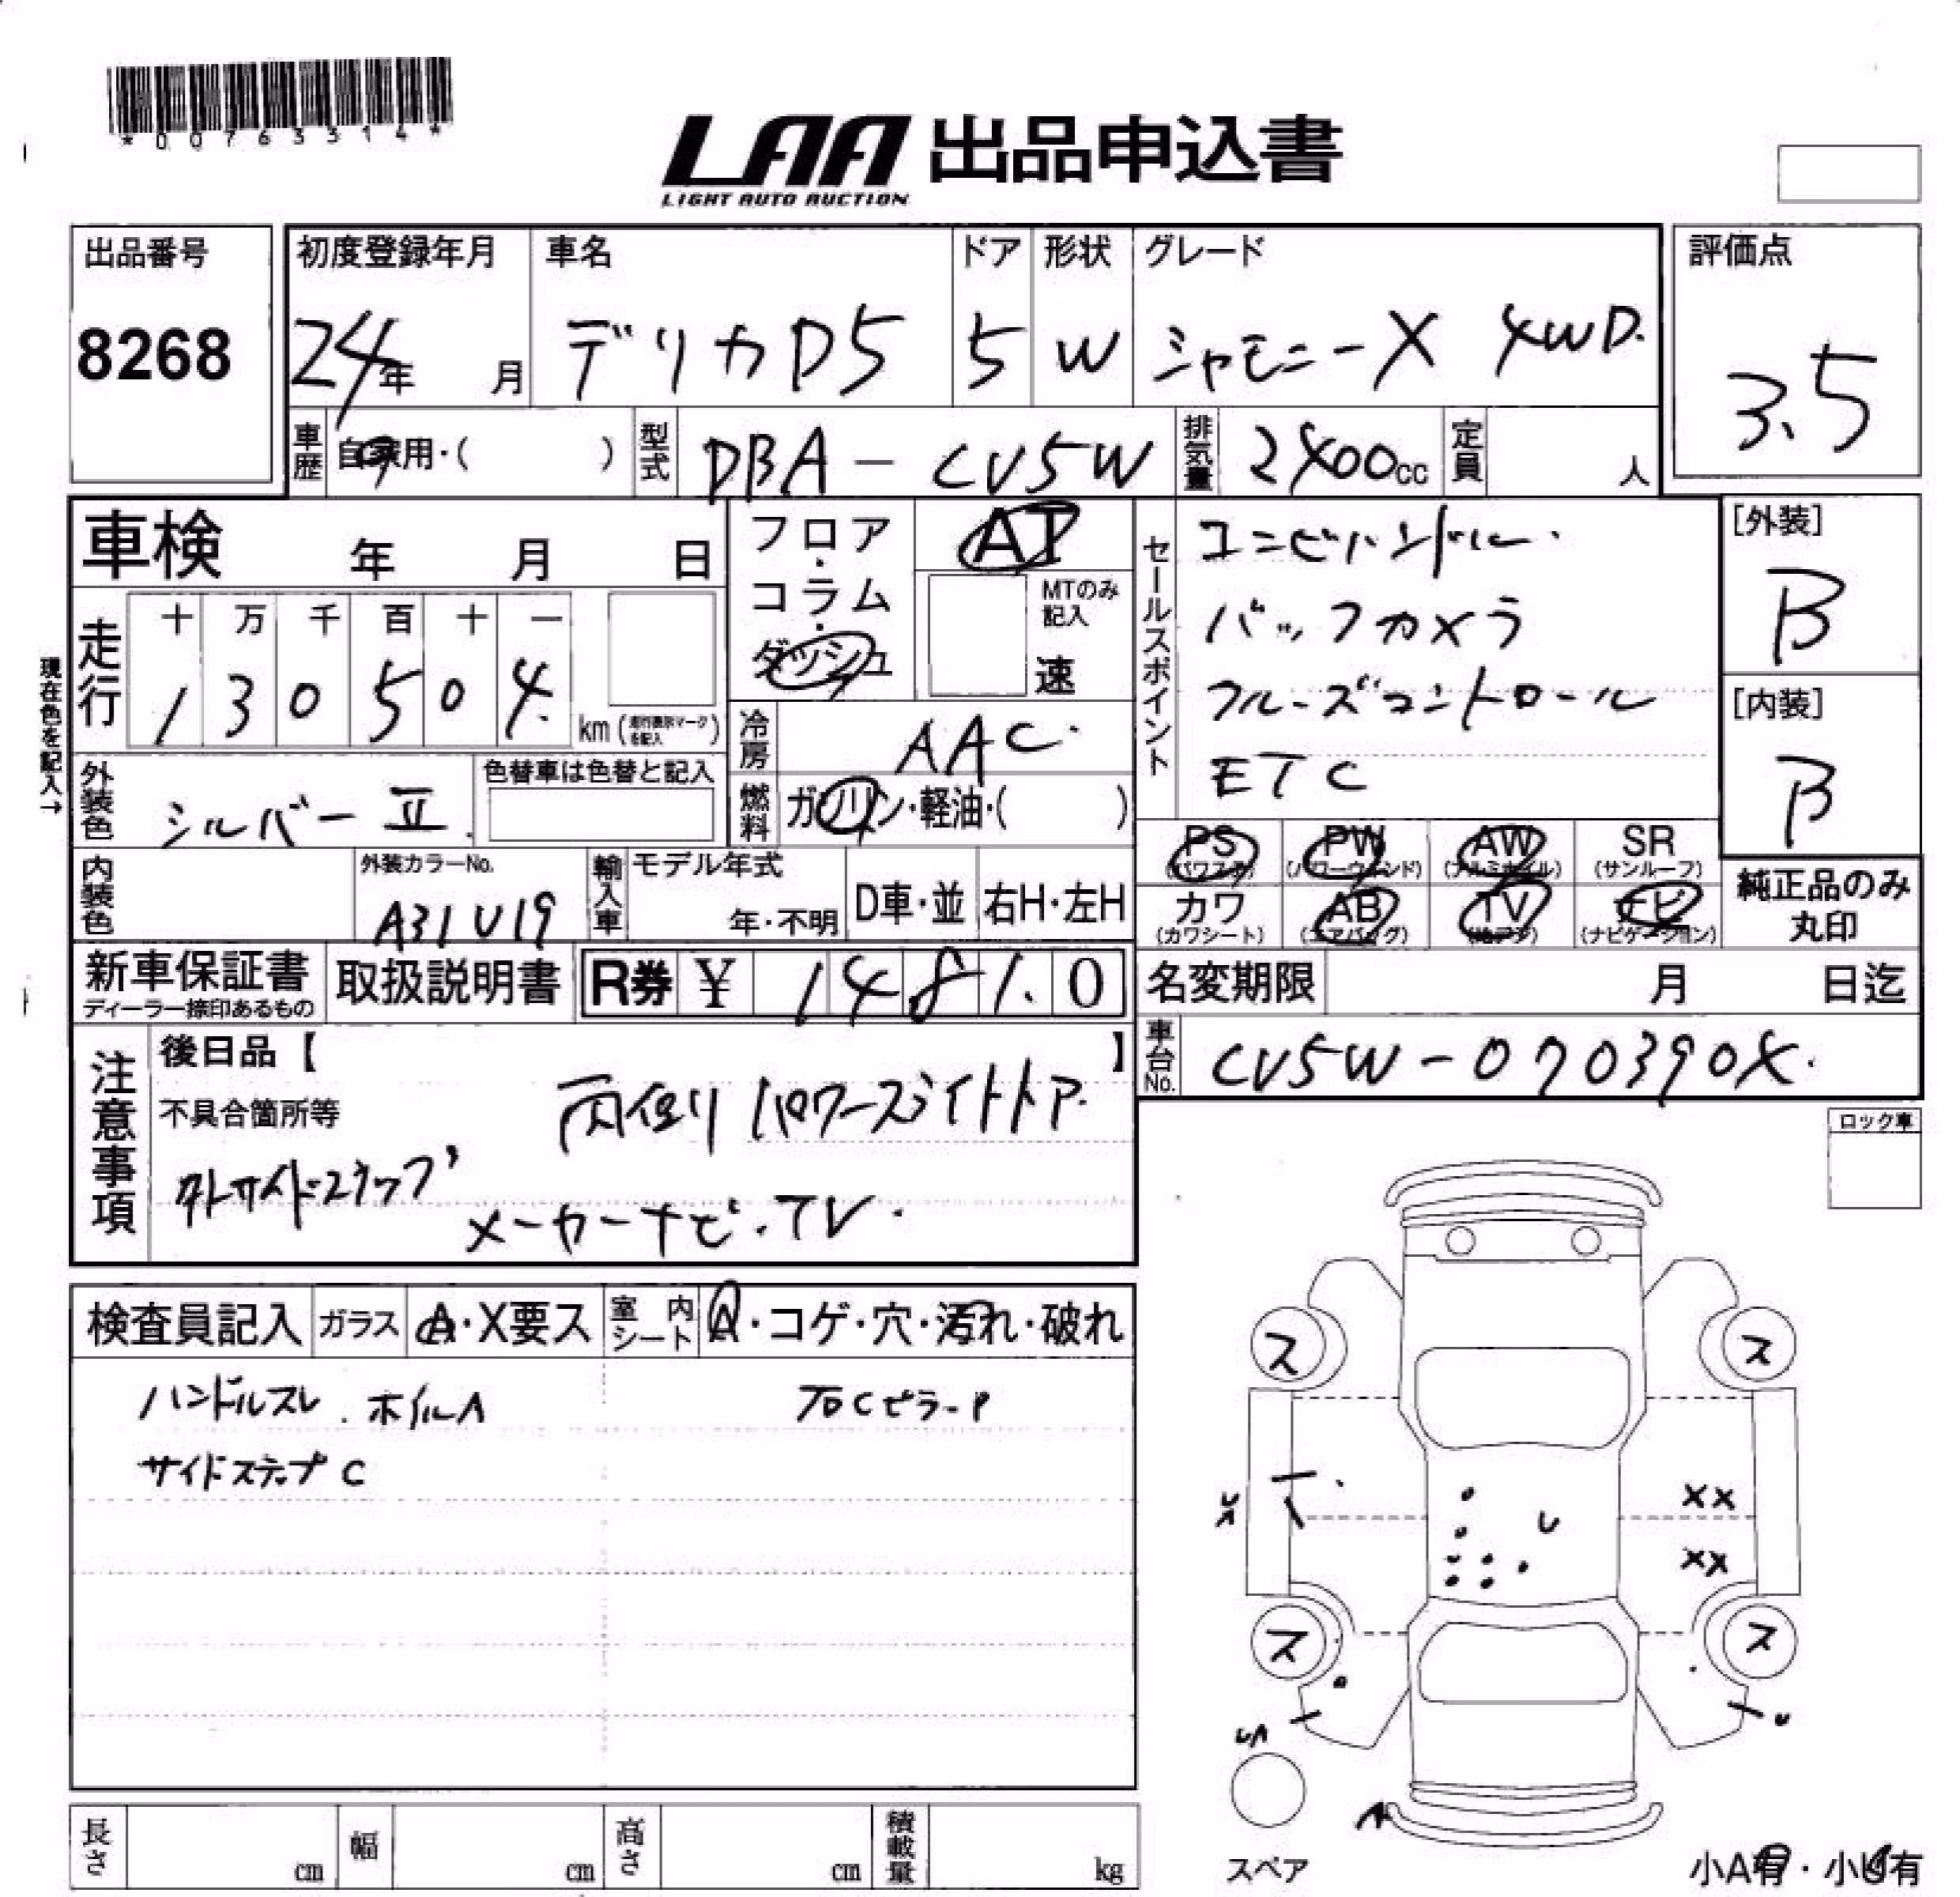 *00763314*
LAA 出品申込書
LIGHT AUTO AUCTION
出品番号
8268
初度登録年月
24年 月
車名
デリカD5
ドア
5
形状
W
グレード
シャモニーX 4WD.
評価点
3.5
車歴
自家用・( )
型式
DBA-CV5W
排気量
2400cc
定員
人
車検 年 月 日
フロア・コラム・ダッシュ
AT
MTのみ記入
速
セールスポイント
コンビハンドル.
バックカメラ
クルーズコントロール
ETC
[外装]
B
[内装]
B
現在色を記入→
走行
十 万 千 百 十 一
1 3 0 5 0 4
km(走行表示マークを記入)
冷房
AAC.
燃料
ガソリン・軽油・( )
外装色
シルバーII.
色替車は色替と記入
PS
(パワステ)
PW
(パワーウィンド)
AW
(アルミホイル)
SR
(サンルーフ)
カワ
(カワシート)
AB
(エアバッグ)
TV
ナビ
(ナビゲーション)
純正品のみ
丸印
内装色
外装カラーNo.
A31U19
輸入車
モデル年式
年・不明
D車・並
右H・左H
新車保証書
ディーラー捺印あるもの
取扱説明書
R券 ¥ 14810
名変期限 月 日迄
車台No.
CV5W-070390X.
注意事項
後日品【 】
不具合箇所等
両側パワースライドドア.
外サイドステップ
メーカーナビ.TV.
ロック車
検査員記入
ガラス
A・X要ス
室内シート
A・コゲ・穴・汚れ・破れ
ハンドルスレ.ホイルA
右CピラーP
サイドステップC
ス
ス
XX
XX
ス
ス
スペア
小A有・小U有
長さ cm
幅 cm
高さ cm
積載量 kg